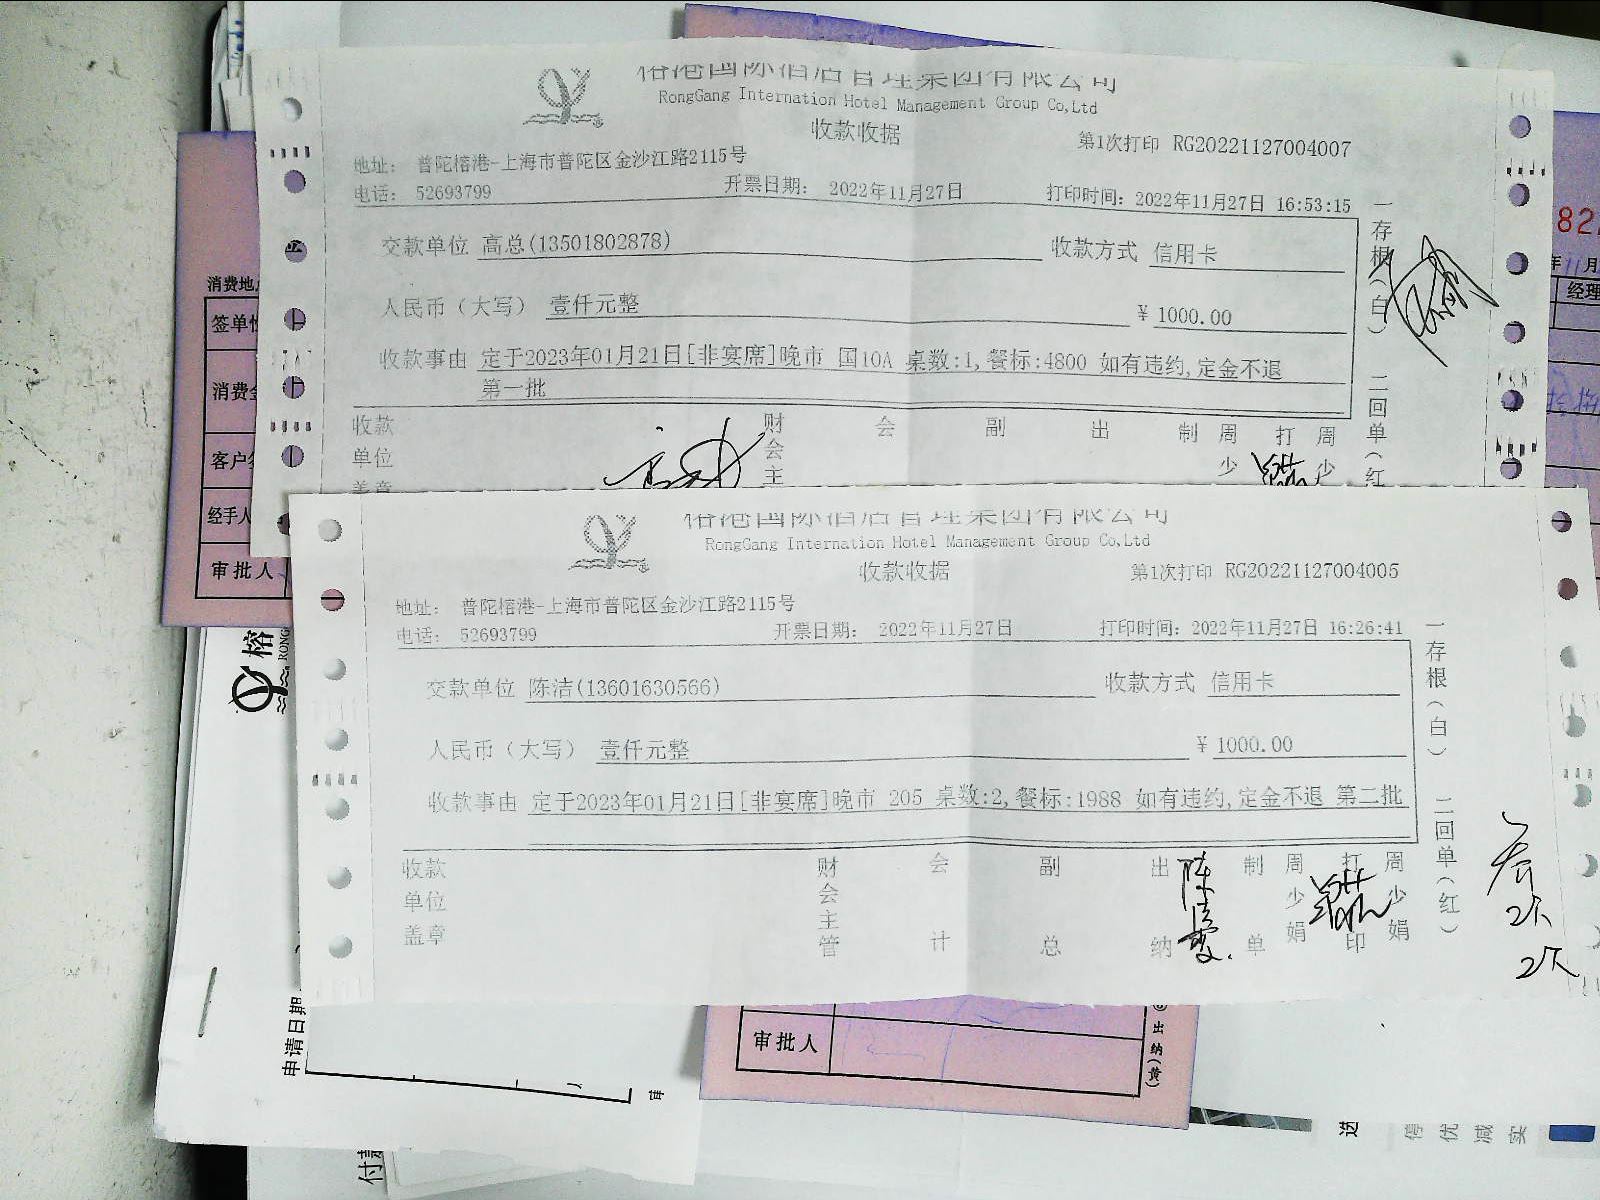 榕港国际酒店管理集团有限公司
RongGang Internation Hotel Management Group Co,Ltd
收款收据
第1次打印 RG20221127004007
地址： 普陀榕港-上海市普陀区金沙江路2115号
电话： 52693799
开票日期： 2022年11月27日
打印时间：2022年11月27日 16:53:15
交款单位 高总(13501802878)
收款方式 信用卡
人民币（大写） 壹仟元整
¥ 1000.00
收款事由 定于2023年01月21日[非宴席]晚市 国10A 桌数:1,餐标:4800 如有违约,定金不退
第一批
一存根(白)
二回单(红
收款
单位
盖章
财会主
会
副
出
制
周少
打
周少
榕港国际酒店管理集团有限公司
RongGang Internation Hotel Management Group Co,Ltd
收款收据
第1次打印 RG20221127004005
地址： 普陀榕港-上海市普陀区金沙江路2115号
电话： 52693799
开票日期： 2022年11月27日
打印时间：2022年11月27日 16:26:41
交款单位 陈洁(13601630566)
收款方式 信用卡
人民币（大写） 壹仟元整
¥ 1000.00
收款事由 定于2023年01月21日[非宴席]晚市 205 桌数:2,餐标:1988 如有违约,定金不退 第二批
一存根(白)
二回单(红)
收款
单位
盖章
财会主管
会计
副总
出纳
制单
周少娟
打印
周少娟
消费地
签单
消费金
客户
经手人
审批人
82
年11月
经理
榕
申请日期
审批人
出纳(黄)
付
停
优
减
实